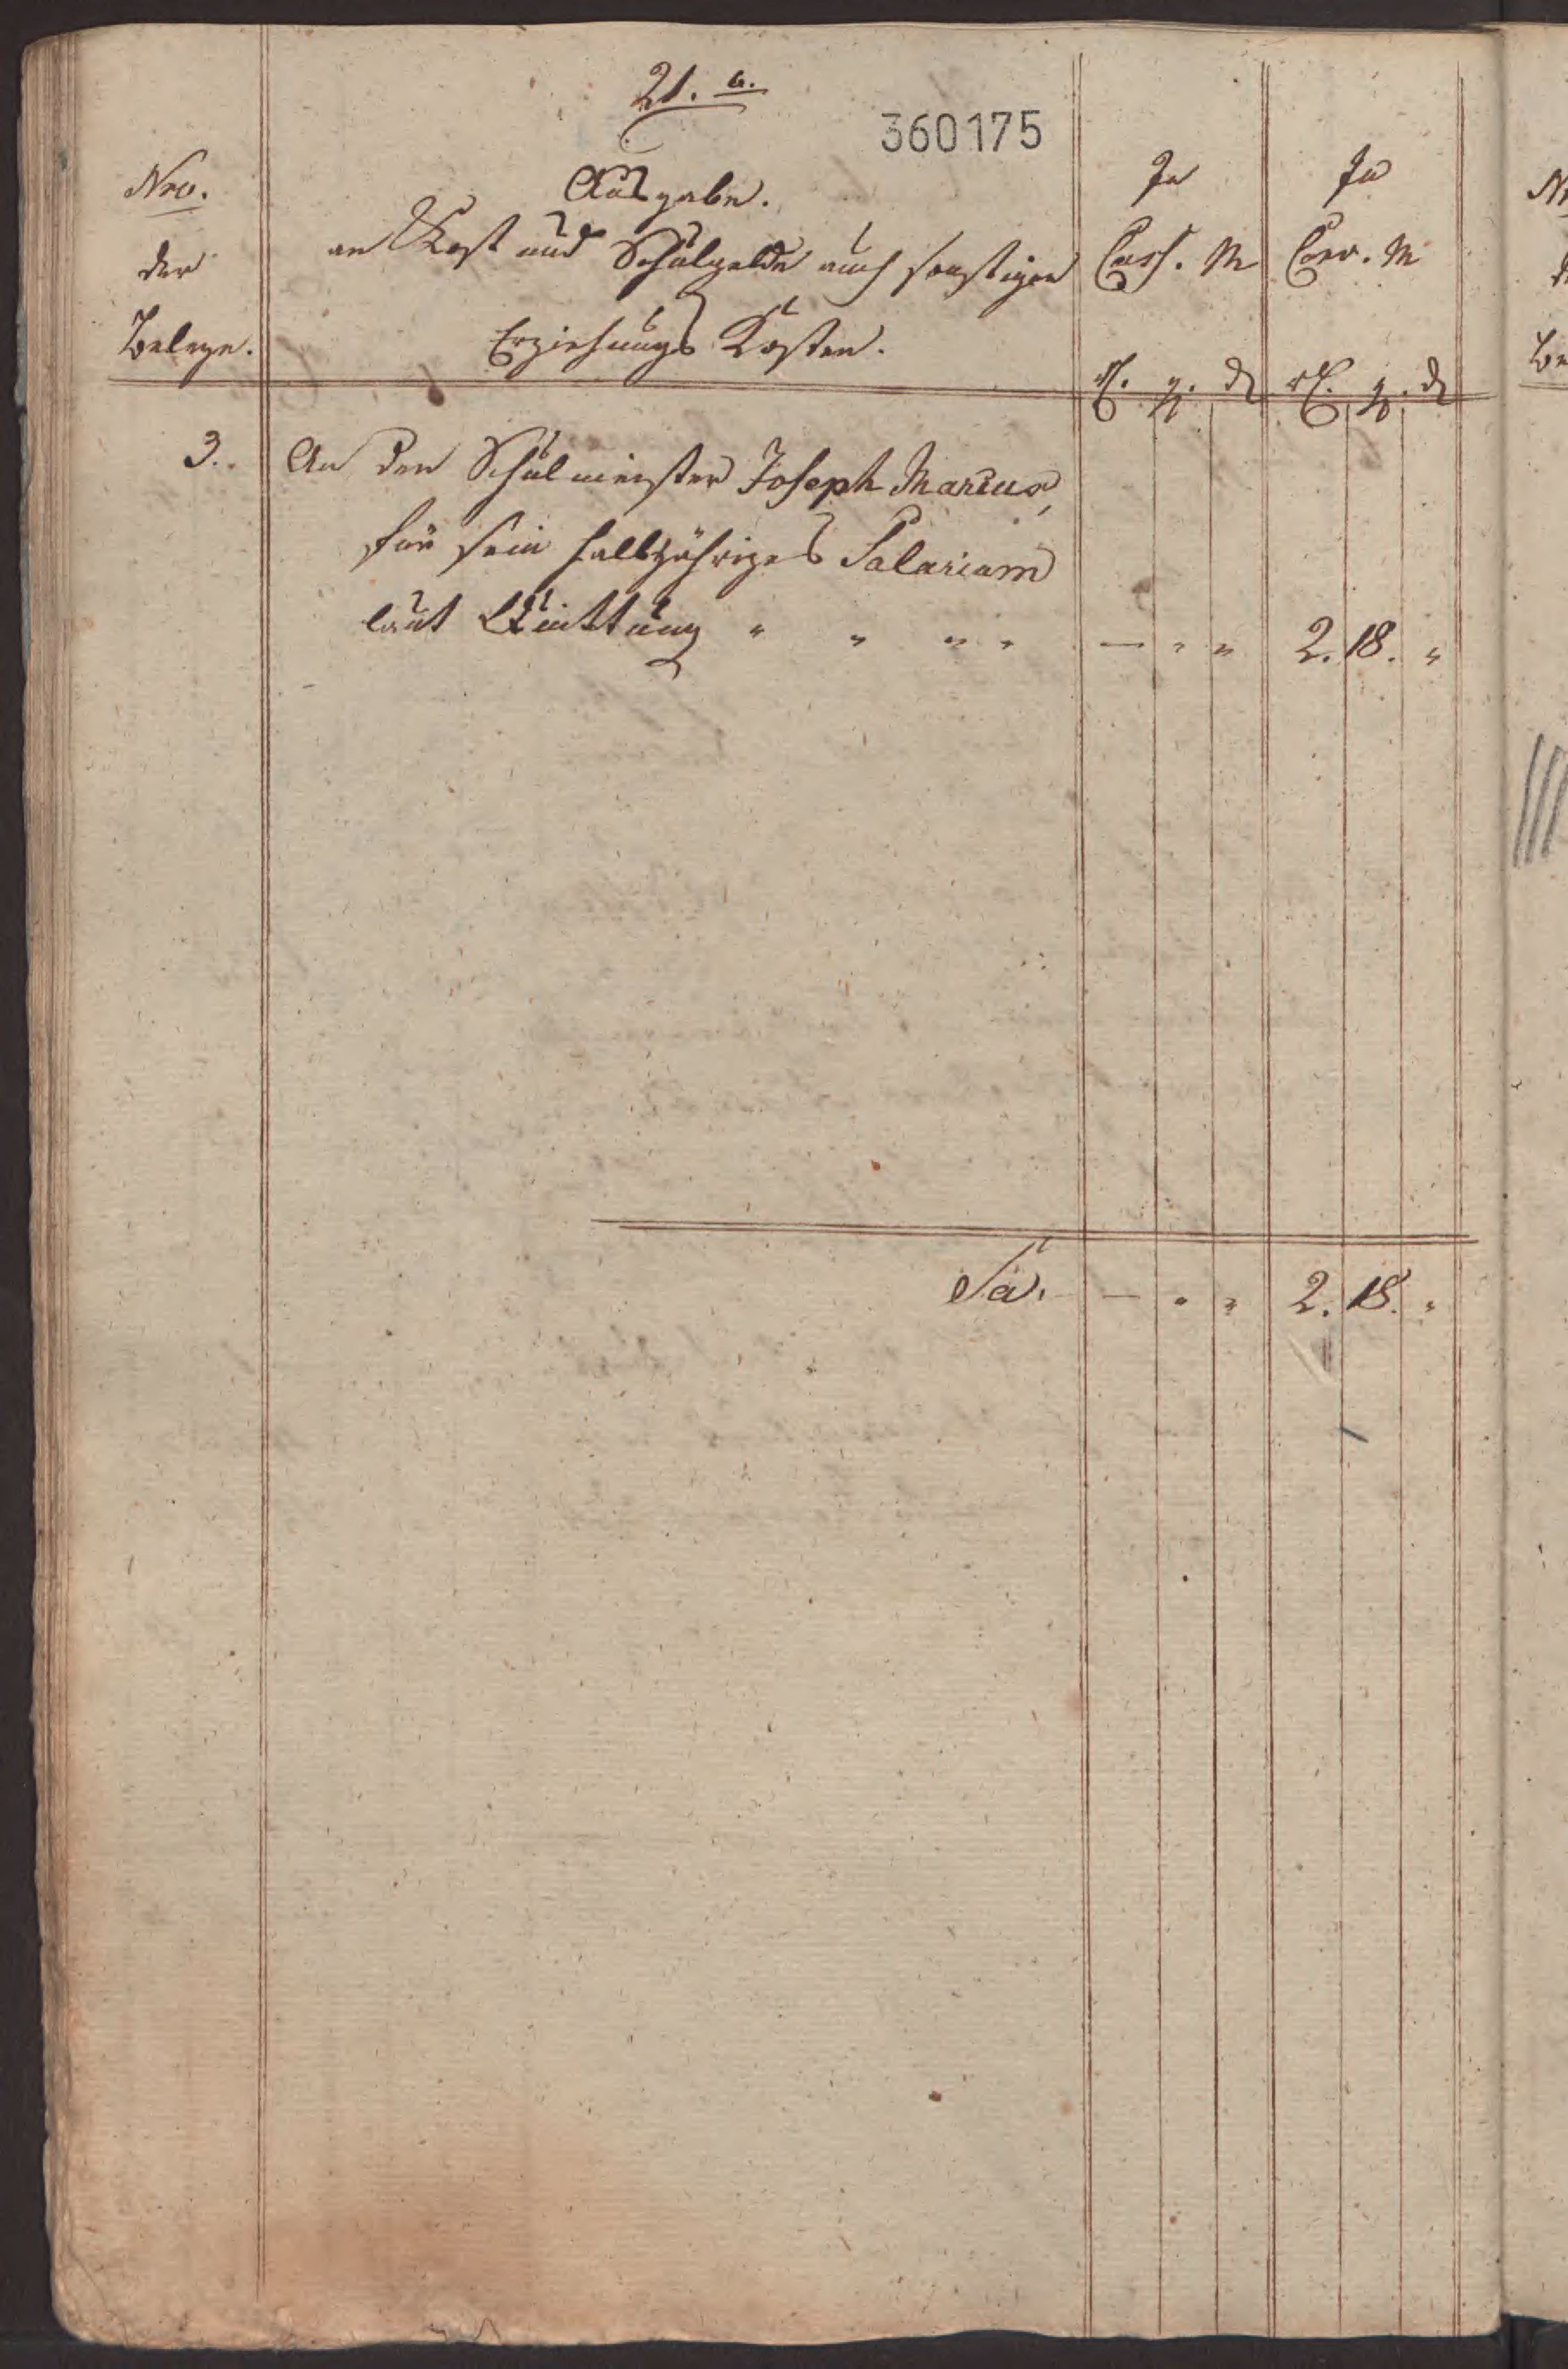 21. a.
360175
Nro.
der
Belege.
Ausgabe.
an Kost und Schulgelde auch sonstigen
Erziehungs Kosten.
In
Cass. M
In
Conv. M
rl. g. d
rl. g. d
3. An den Schulmeister Joseph Marcus,
für sein halbjähriges Salarium
laut Quittung " " " " — " " 2. 18. "
Sa. — " " 2. 18. "